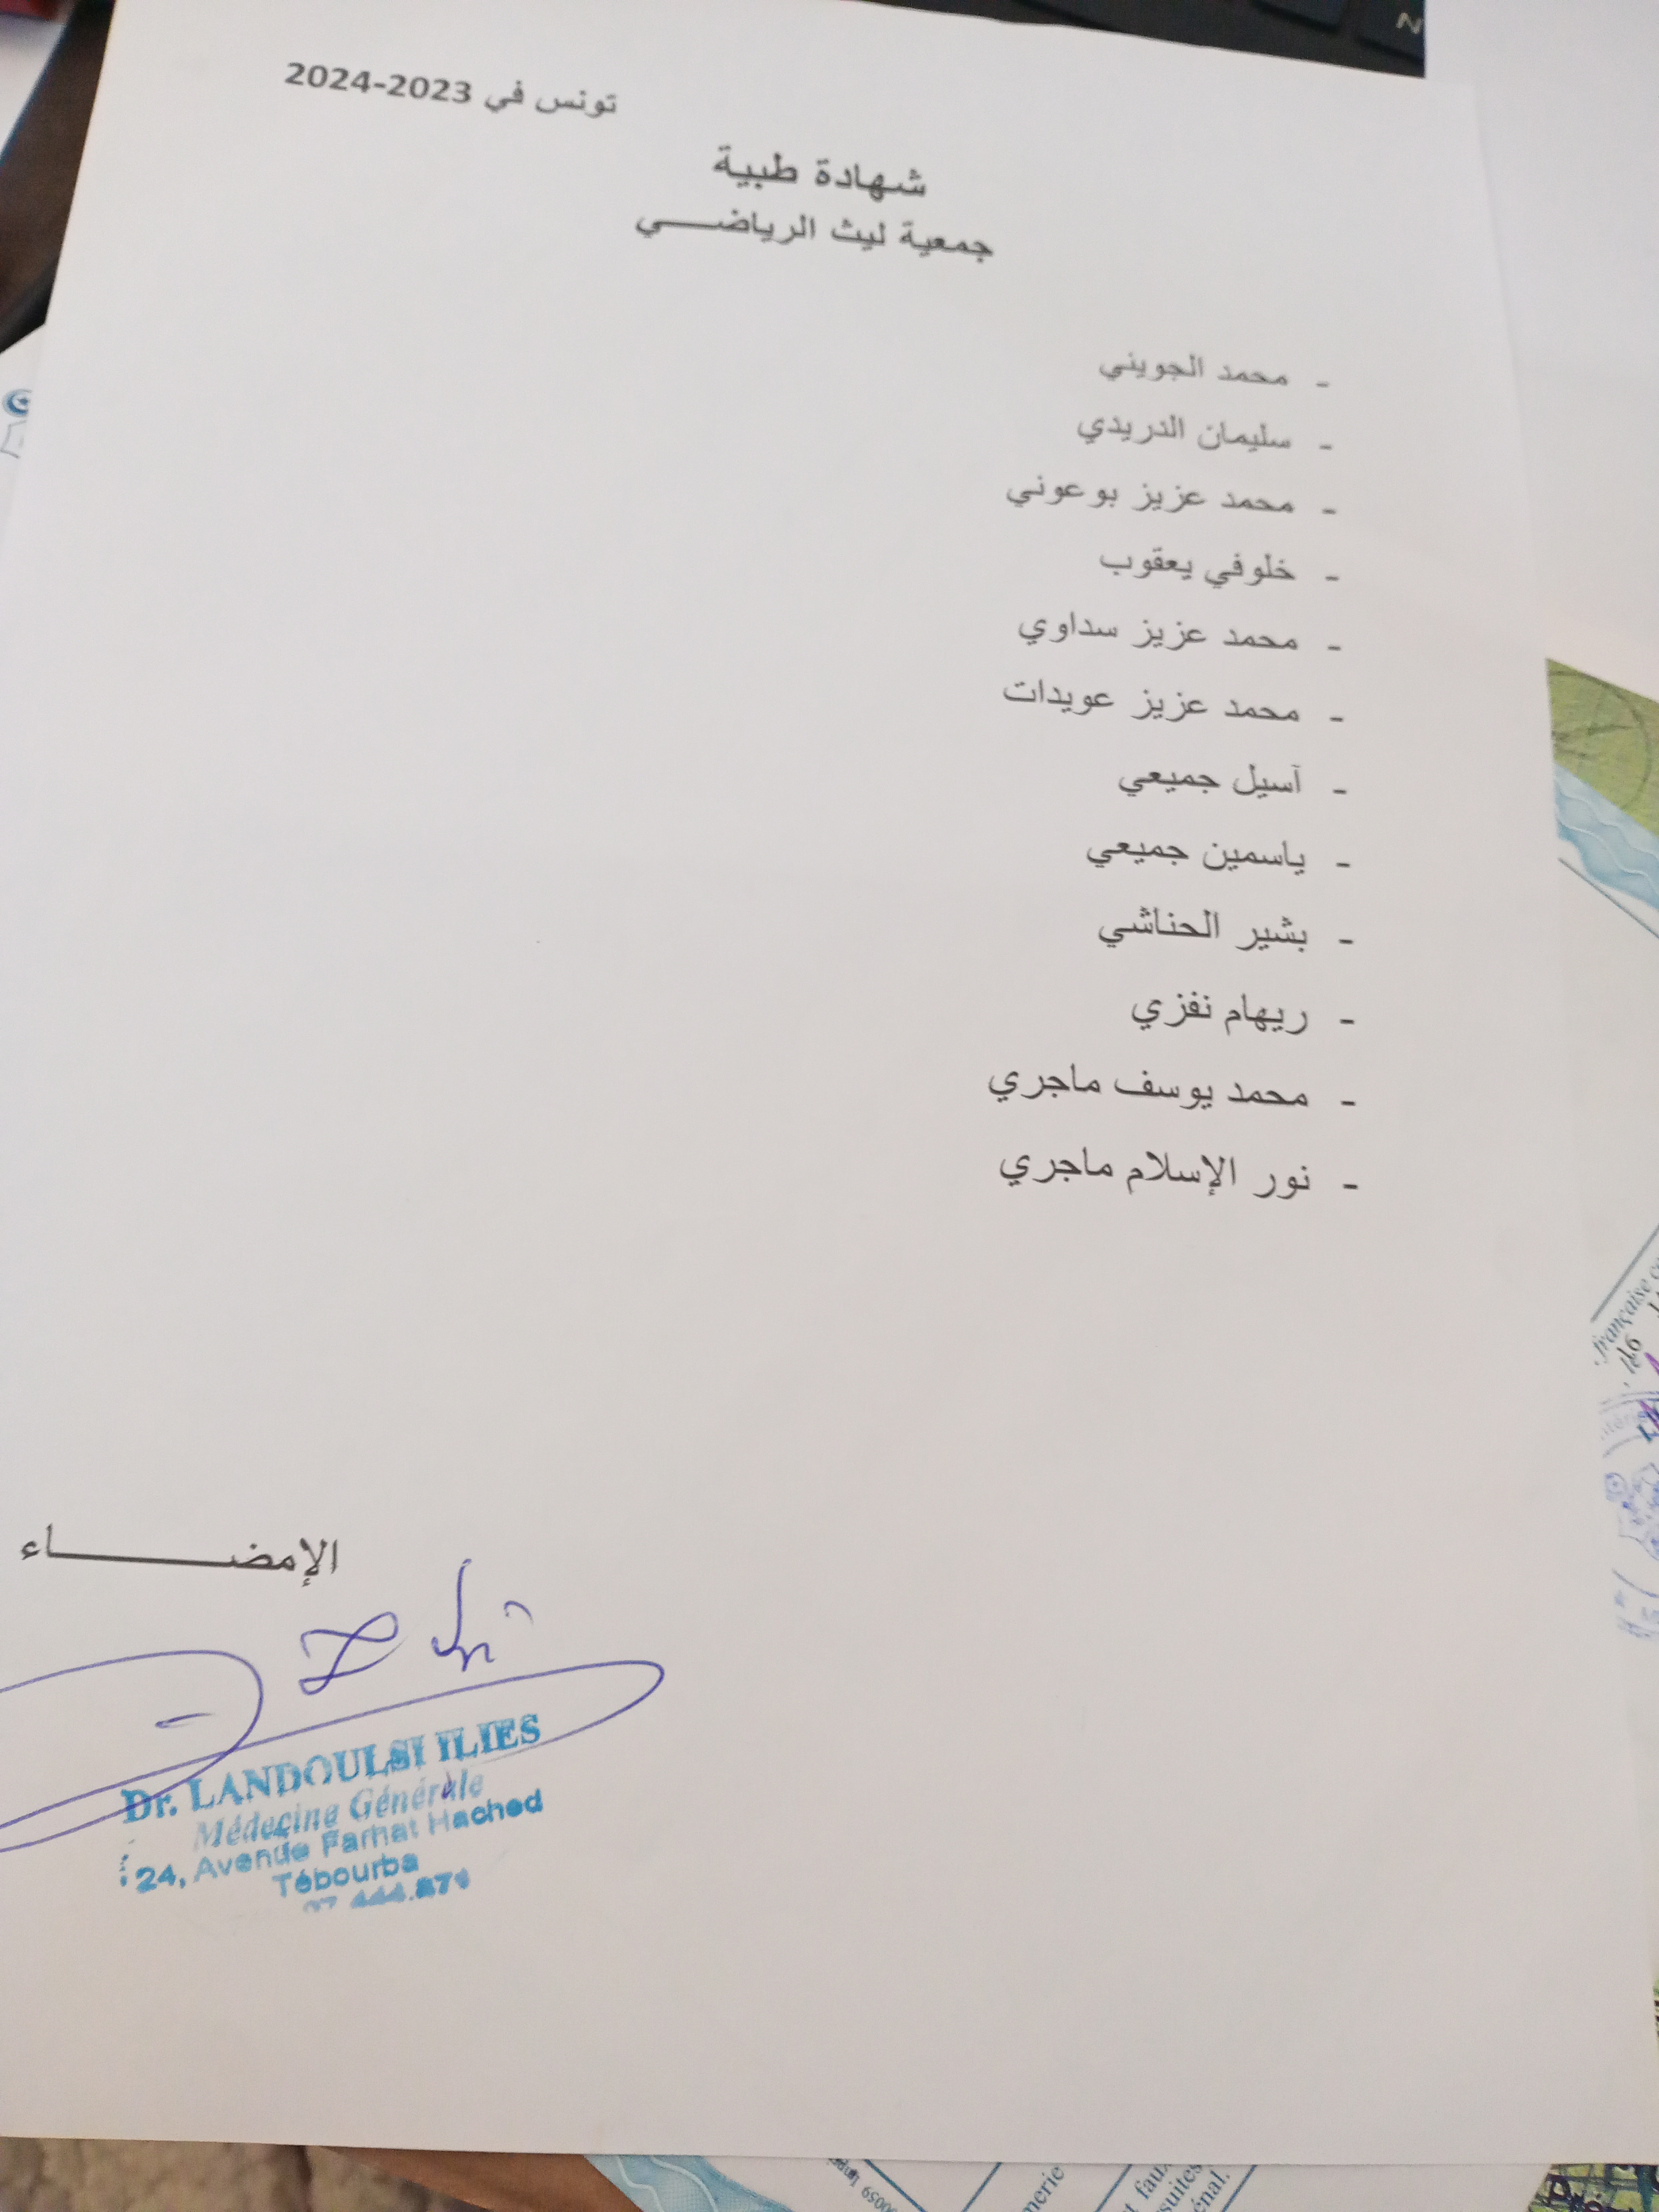 تونس في 2023-2024
شهادة طبية
جمعية ليث الرياضـــي
- محمد الجويني
- سليمان الدريدي
- محمد عزيز بوعوني
- خلوفي يعقوب
- محمد عزيز سداوي
- محمد عزيز عويدات
- آسيل جميعي
- ياسمين جميعي
- بشير الحناشي
- ريهام نفزي
- محمد يوسف ماجري
- نور الإسلام ماجري
الإمضـــــــــاء
Dr. LANDOULSI ILIES
Médecine Générale
24, Avenue Farhat Hached
Tébourba
française
énal.
N